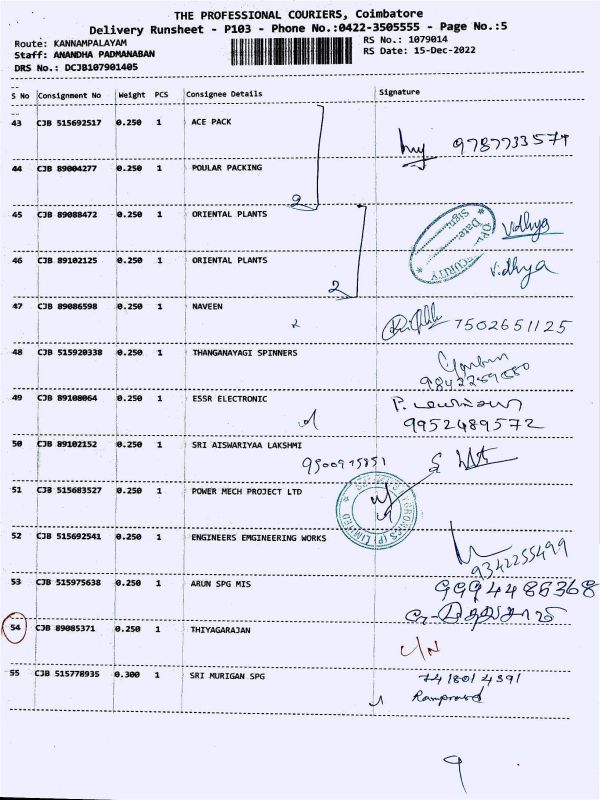 THE PROFESSIONAL COURIERS, Coimbatore
Delivery Runsheet - P103 - Phone No.:0422-3505555 - Page No.:5
Route: KANNAMPALAYAM RS No.: 1079014
Staff: ANANDHA PADMANABAN RS Date: 15-Dec-2022
DRS No.: DCJB107901405
S No Consignment No Weight PCS Consignee Details Signature
43 CJB 515692517 0.250 1 ACE PACK
9787733574
44 CJB 89004277 0.250 1 POULAR PACKING
2
45 CJB 89088472 0.250 1 ORIENTAL PLANTS Vidhya
46 CJB 89102125 0.250 1 ORIENTAL PLANTS Vidhya
2
47 CJB 89086598 0.250 1 NAVEEN 7502651125
48 CJB 515920338 0.250 1 THANGANAYAGI SPINNERS
49 CJB 89108064 0.250 1 ESSR ELECTRONIC
9952489572
50 CJB 89102152 0.250 1 SRI AISWARIYAA LAKSHMI
51 CJB 515683527 0.250 1 POWER MECH PROJECT LTD
52 CJB 515692541 0.250 1 ENGINEERS EMGINEERING WORKS
9342255499
53 CJB 515975638 0.250 1 ARUN SPG MIS 9994486368
54 CJB 89085371 0.250 1 THIYAGARAJAN C/N
55 CJB 515778935 0.300 1 SRI MURIGAN SPG 7418014391
Ramprasd
9